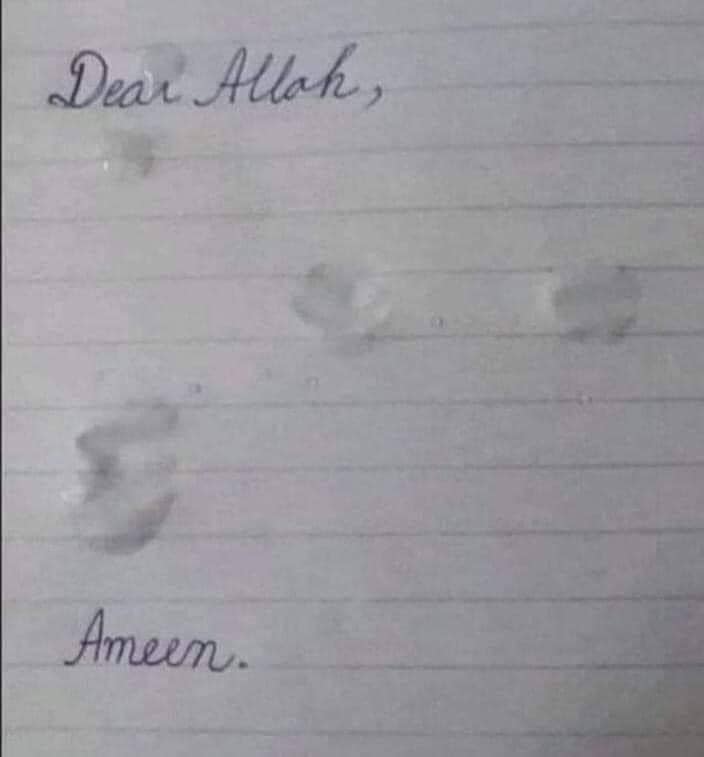 Dear Allah,
Ameen.